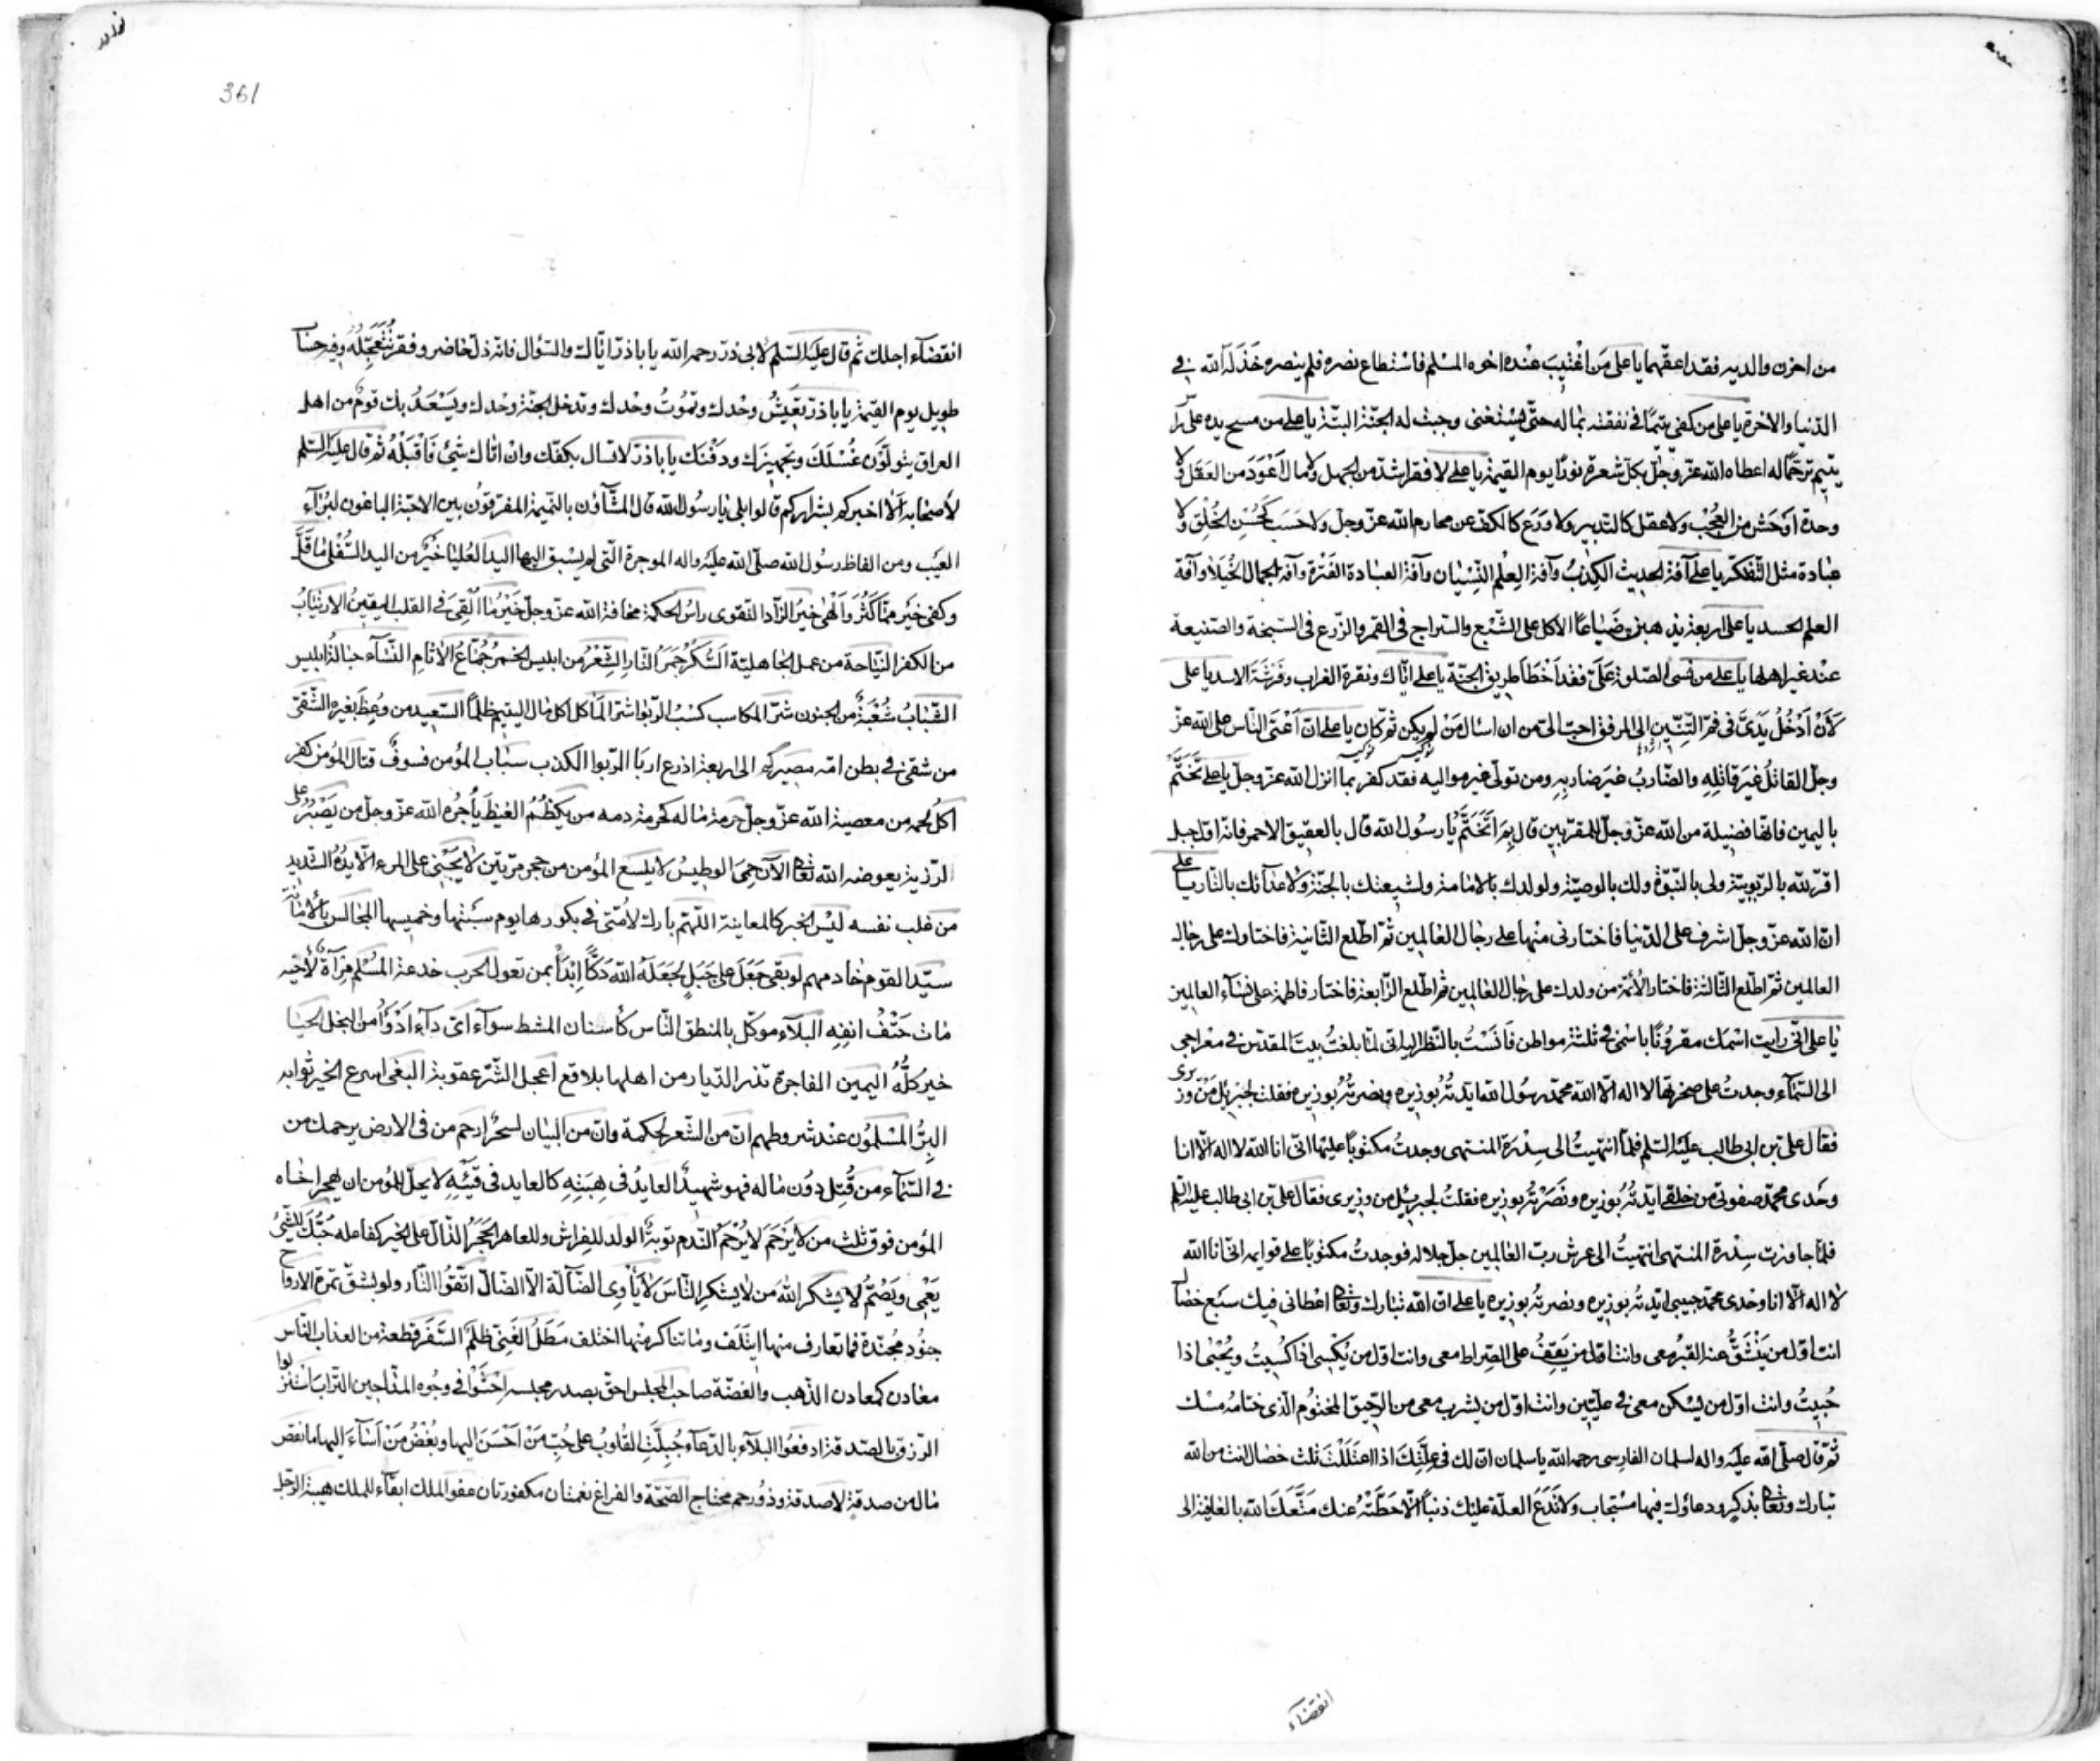 من احزن والديه فقد اعقّهما يا على من اغتيب عنده اخوه المسلم فاستطاع نصره فلم ينصره خذله الله في
الدّنيا والاخرة يا على من كفى يتيمًا في نفقته بماله حتّى يستغنى وجبت له الجنّة البتّة يا على من مسح يده على راس
يتيم ترحّمًا له اعطاه الله عزّ وجلّ بكلّ شعرة نورًا يوم القيمة يا على لا فقر اشدّ من الجهل ولا مال اعود من العقل ولا
وحدة اوحش من العجب ولا عقل كالتدبير ولا ورع كالكف عن محارم الله عزّ وجلّ ولا حسب كحسن الخلق ولا
عبادة مثل التّفكّر يا على آفة الحديث الكذب وآفة العلم النّسيان وآفة العبادة الفترة وآفة الجمال الخيلاء وآفة
العلم الحسد يا على اربعة يذهبن ضياعًا الاكل على الشّبع والسّراج في القمر والزّرع في السّبخة والصّنيعة
عند غير اهلها يا على من نسى الصّلوة علىّ فقد اخطأ طريق الجنّة يا على ايّاك ونقرة الغراب وفرشة الاسد يا على
لأن أدخل يدىّ في فم التّنّين الى المرفق احبّ الىّ من ان اسال من لم يكن ثمّ كان يا على انّ أعتى النّاس على الله عزّ
وجلّ القاتل غير قاتله والضّارب غير ضاربه ومن تولّى غير مواليه فقد كفر بما انزل الله عزّ وجلّ يا على تختّم
باليمين فانّها فضيلة من الله عزّ وجلّ للمقرّبين قال بم اتختّم يا رسول الله قال بالعقيق الاحمر فانّه اوّل جبل
اقرّ لله بالرّبوبيّة ولى بالنّبوّة ولك بالوصيّة ولولدك بالامامة ولشيعتك بالجنّة ولاعدائك بالنّار يا على
انّ الله عزّ وجلّ اشرف على الدّنيا فاختارنى منها على رجال العالمين ثمّ اطّلع الثّانية فاختارك على رجال
العالمين ثمّ اطّلع الثّالثة فاختار الأئمّة من ولدك على رجال العالمين ثمّ اطّلع الرّابعة فاختار فاطمة على نساء العالمين
يا على انّى رايت اسمك مقرونًا باسمى في ثلثة مواطن فآنست بالنّظر اليه انّى لمّا بلغت بيت المقدّس في معراجى
الى السّماء وجدت على صخرتها لا اله الّا الله محمّد رسول الله ايّدته بوزيره ونصرته بوزيره فقلت لجبرئيل من وزيرى
فقال علىّ بن ابى طالب عليه السّلم فلمّا انتهيت الى سدرة المنتهى وجدت مكتوبًا عليها انّى انا الله لا اله الّا انا
وحدى محمّد صفوتى من خلقى ايّدته بوزيره ونصرته بوزيره فقلت لجبرئيل من وزيرى فقال علىّ بن ابى طالب عليه السّلم
فلمّا جاوزت سدرة المنتهى انتهيت الى عرش ربّ العالمين جلّ جلاله فوجدت مكتوبًا على قوايمه انّى انا الله
لا اله الّا انا وحدى محمّد حبيبى ايّدته بوزيره ونصرته بوزيره يا على انّ الله تبارك وتعا اعطانى فيك سبع خصال
انت اوّل من ينشقّ عنه القبر معى وانت اوّل من يقف على الصّراط معى وانت اوّل من يكسى اذا كسيت ويحيى اذا
حييت وانت اوّل من يسكن معى في علّيّين وانت اوّل من يشرب معى من الرّحيق المختوم الّذى ختامه مسك
ثمّ قال صلّى الله عليه واله لسلمان الفارسى رحمه الله يا سلمان انّ لك في علّتك اذا اعتللت ثلث خصال انت من الله
تبارك وتعا بذكر ودعاؤك فيها مستجاب ولا تدع العلّة عليك ذنبًا الّا حطّته عنك متّعك الله بالعافية الى
انقضاء
361
انقضاء اجلك ثمّ قال عليه السّلم لابى ذرّ رحمه الله يا باذرّ ايّاك والسّؤال فانّه ذلّ حاضر وفقر تتعجّله وفيه حساب
طويل يوم القيمة يا باذرّ تعيش وحدك وتموت وحدك وتدخل الجنّة وحدك ويسعد بك قوم من اهل
العراق يتولّون غسلك وتجهيزك ودفنك يا باذرّ لا تسال بكفّك وان اتاك شيء فاقبله ثمّ قال عليه السّلم
لأصحابه ألا اخبركم بشراركم قالوا بلى يا رسول الله قال المشّاؤن بالنّميمة المفرّقون بين الاحبّة الباغون لبرآء
العيب ومن الفاظ رسول الله صلّى الله عليه واله الموجزة الّتى لم يسبق اليها اليد العليا خير من اليد السّفلى ما قلّ
وكفى خير ممّا كثر وألهى خير الزّاد التّقوى راس الحكمة مخافة الله عزّ وجلّ خير ما ألقى في القلب اليقين الارتياب
من الكفر النّياحة من عمل الجاهليّة السّكر جمر النّار الشّعر من ابليس الخمر جمّاع الاثام النّساء حبالة ابليس
الشّباب شعبة من الجنون شرّ المكاسب كسب الرّبوا شرّ المآكل اكل مال اليتيم ظلمًا السّعيد من وعظ بغيره الشّقىّ
من شقى في بطن امّه مصيركم الى اربعة اذرع اربا الرّبوا الكذب سباب المؤمن فسوق قتال المؤمن كفر
اكل لحمه من معصية الله عزّ وجلّ حرمة ماله كحرمة دمه من يكظم الغيظ يأجره الله عزّ وجلّ من يصبر على
الرّزيّة يعوضه الله تعا الآن حمى الوطيس لا يلسع المؤمن من حجر مرّتين لا يجنى على المرء الّا يده الشّديد
من غلب نفسه ليس الخبر كالمعاينة اللّهمّ بارك لأمّتى في بكورها يوم سبتها وخميسها المجالس بالأمانة
سيّد القوم خادمهم لو بغى جبل على جبل لجعله الله دكًّا ابدأ بمن تعول الحرب خدعة المسلم مرآة لأخيه
مات حتف انفه البلاء موكّل بالمنطق النّاس كأسنان المشط سواء اىّ داء ادوأ من البخل الحيا
خير كلّه اليمين الفاجرة تذر الدّيار من اهلها بلاقع اعجل الشّرّ عقوبة البغى اسرع الخير ثوابه
البرّ المسلمون عند شروطهم انّ من الشّعر لحكمة وانّ من البيان لسحرًا ارحم من في الارض يرحمك من
في السّماء من قتل دون ماله فهو شهيد العايد في هبته كالعايد في قيئه لا يحلّ للمؤمن ان يهجر اخاه
المؤمن فوق ثلث من لا يرحم لا يرحم النّدم توبة الولد للفراش وللعاهر الحجر الدّالّ على الخير كفاعله حبّك للشّيء
يعمى ويصمّ لا يشكر الله من لا يشكر النّاس لا يأوى الضّالّة الّا الضّالّ اتّقوا النّار ولو بشقّ تمرة الارواح
جنود مجنّدة فما تعارف منها ايتلف وما تناكر منها اختلف مطل الغنىّ ظلم السّفر قطعة من العذاب النّاس
معادن كمعادن الذّهب والفضّة صاحب المجلس احقّ بصدر مجلسه احثوا في وجوه المدّاحين التّراب استنزلوا
الرّزق بالصّدقة ادفعوا البلاء بالدّعاء جبلت القلوب على حبّ من احسن اليها وبغض من اساء اليها ما نقص
مال من صدقة لا صدقة وذو رحم محتاج الصّحّة والفراغ نعمتان مكفورتان عفو الملك ابقاء للملك هيبة الرّجل